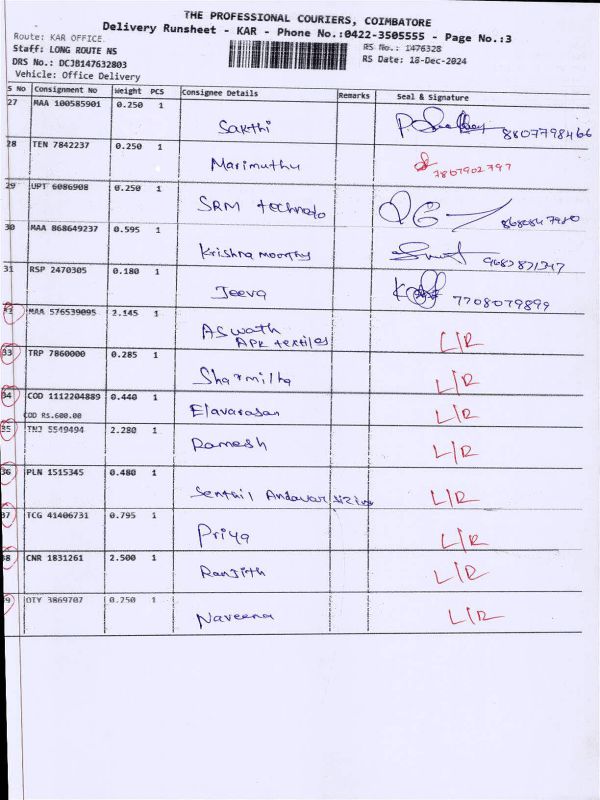 THE PROFESSIONAL COURIERS, COIMBATORE
Delivery Runsheet - KAR - Phone No.:0422-3505555 - Page No.:3
Route: KAR OFFICE.
Staff: LONG ROUTE NS
DRS No.: DCJB147632803
Vehicle: Office Delivery
RS No.: 1476328
RS Date: 18-Dec-2024
S No Consignment No Weight PCS Consignee Details Remarks Seal & Signature
27 MAA 100585901 0.250 1 Sakthi 8807798466
28 TEN 7842237 0.250 1 Marimuthu 7867902797
29 UPT 6086908 0.250 1 SRM techno
30 MAA 868649237 0.595 1 Krishna moorthy
31 RSP 2470305 0.180 1 Jeeva 7708079899
32 MAA 576539095 2.145 1 Aswath L/R
APK textiles
33 TRP 7860000 0.285 1 Sharmilha L/R
34 COD 1112204889 0.440 1 Elavarasan L/R
COD RS.600.00
35 TNJ 5549494 2.280 1 Ramesh L/R
36 PLN 1515345 0.480 1 Senthil Andavar L/R
37 TCG 41406731 0.795 1 Priya L/R
38 CNR 1831261 2.500 1 Ranjith L/R
39 OTY 3869707 0.250 1 Naveena L/R